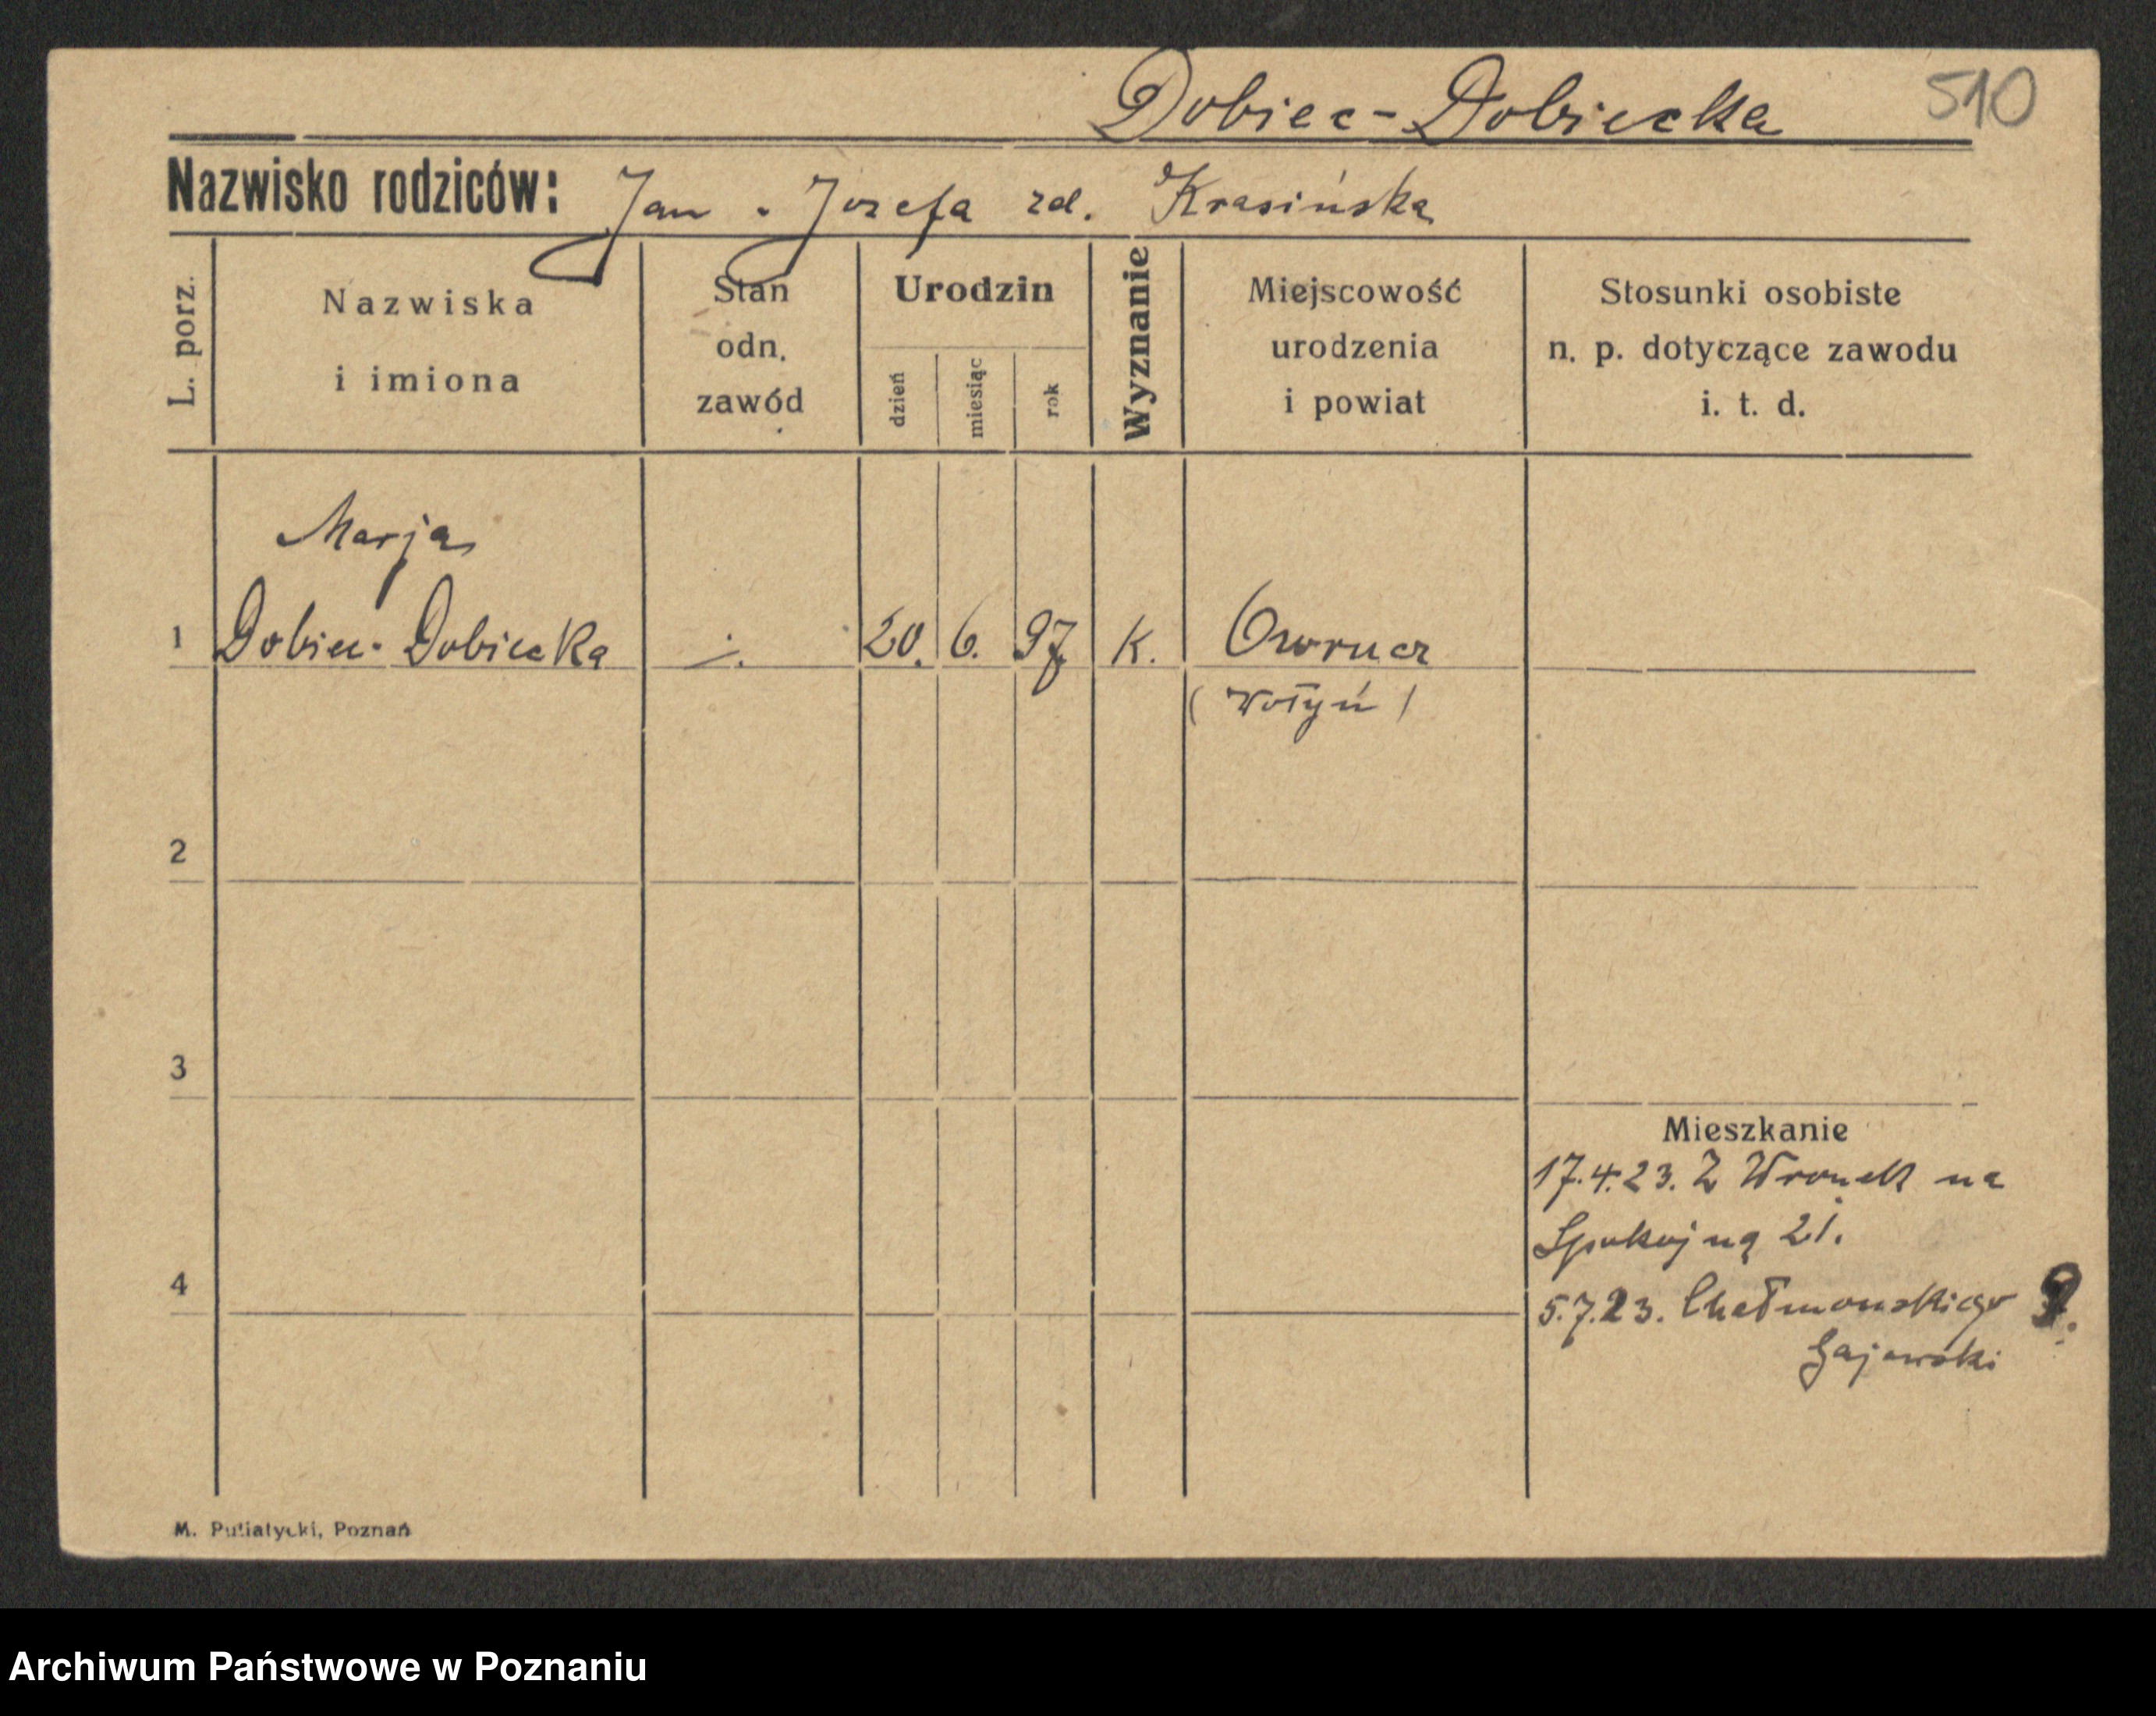 Dobiec-Dobiecka 510
Nazwisko rodziców: Jan . Jozefa zd. Krasińska
L. porz.
Nazwiska
i imiona
Stan
odn.
zawód
Urodzin
dzień
miesiąc
rok
Wyznanie
Miejscowość
urodzenia
i powiat
Stosunki osobiste
n. p. dotyczące zawodu
i. t. d.
Marja
1 Dobiec-Dobiecka 20. 6. 97 K. Owrucz
(Wołyń)
2
3
Mieszkanie
17.4.23. Z Wronek na
Spokojną 21.
4
5.7.23. Chełmońskiego 9.
Gajewski
M. Putiatycki, Poznań
Archiwum Państwowe w Poznaniu